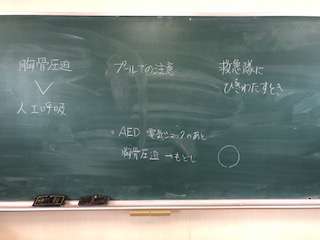 胸骨圧迫
人工呼吸
プールでの注意
・AED 電気ショックのあと
胸骨圧迫 →もどし
救急隊に
ひきわたすとき